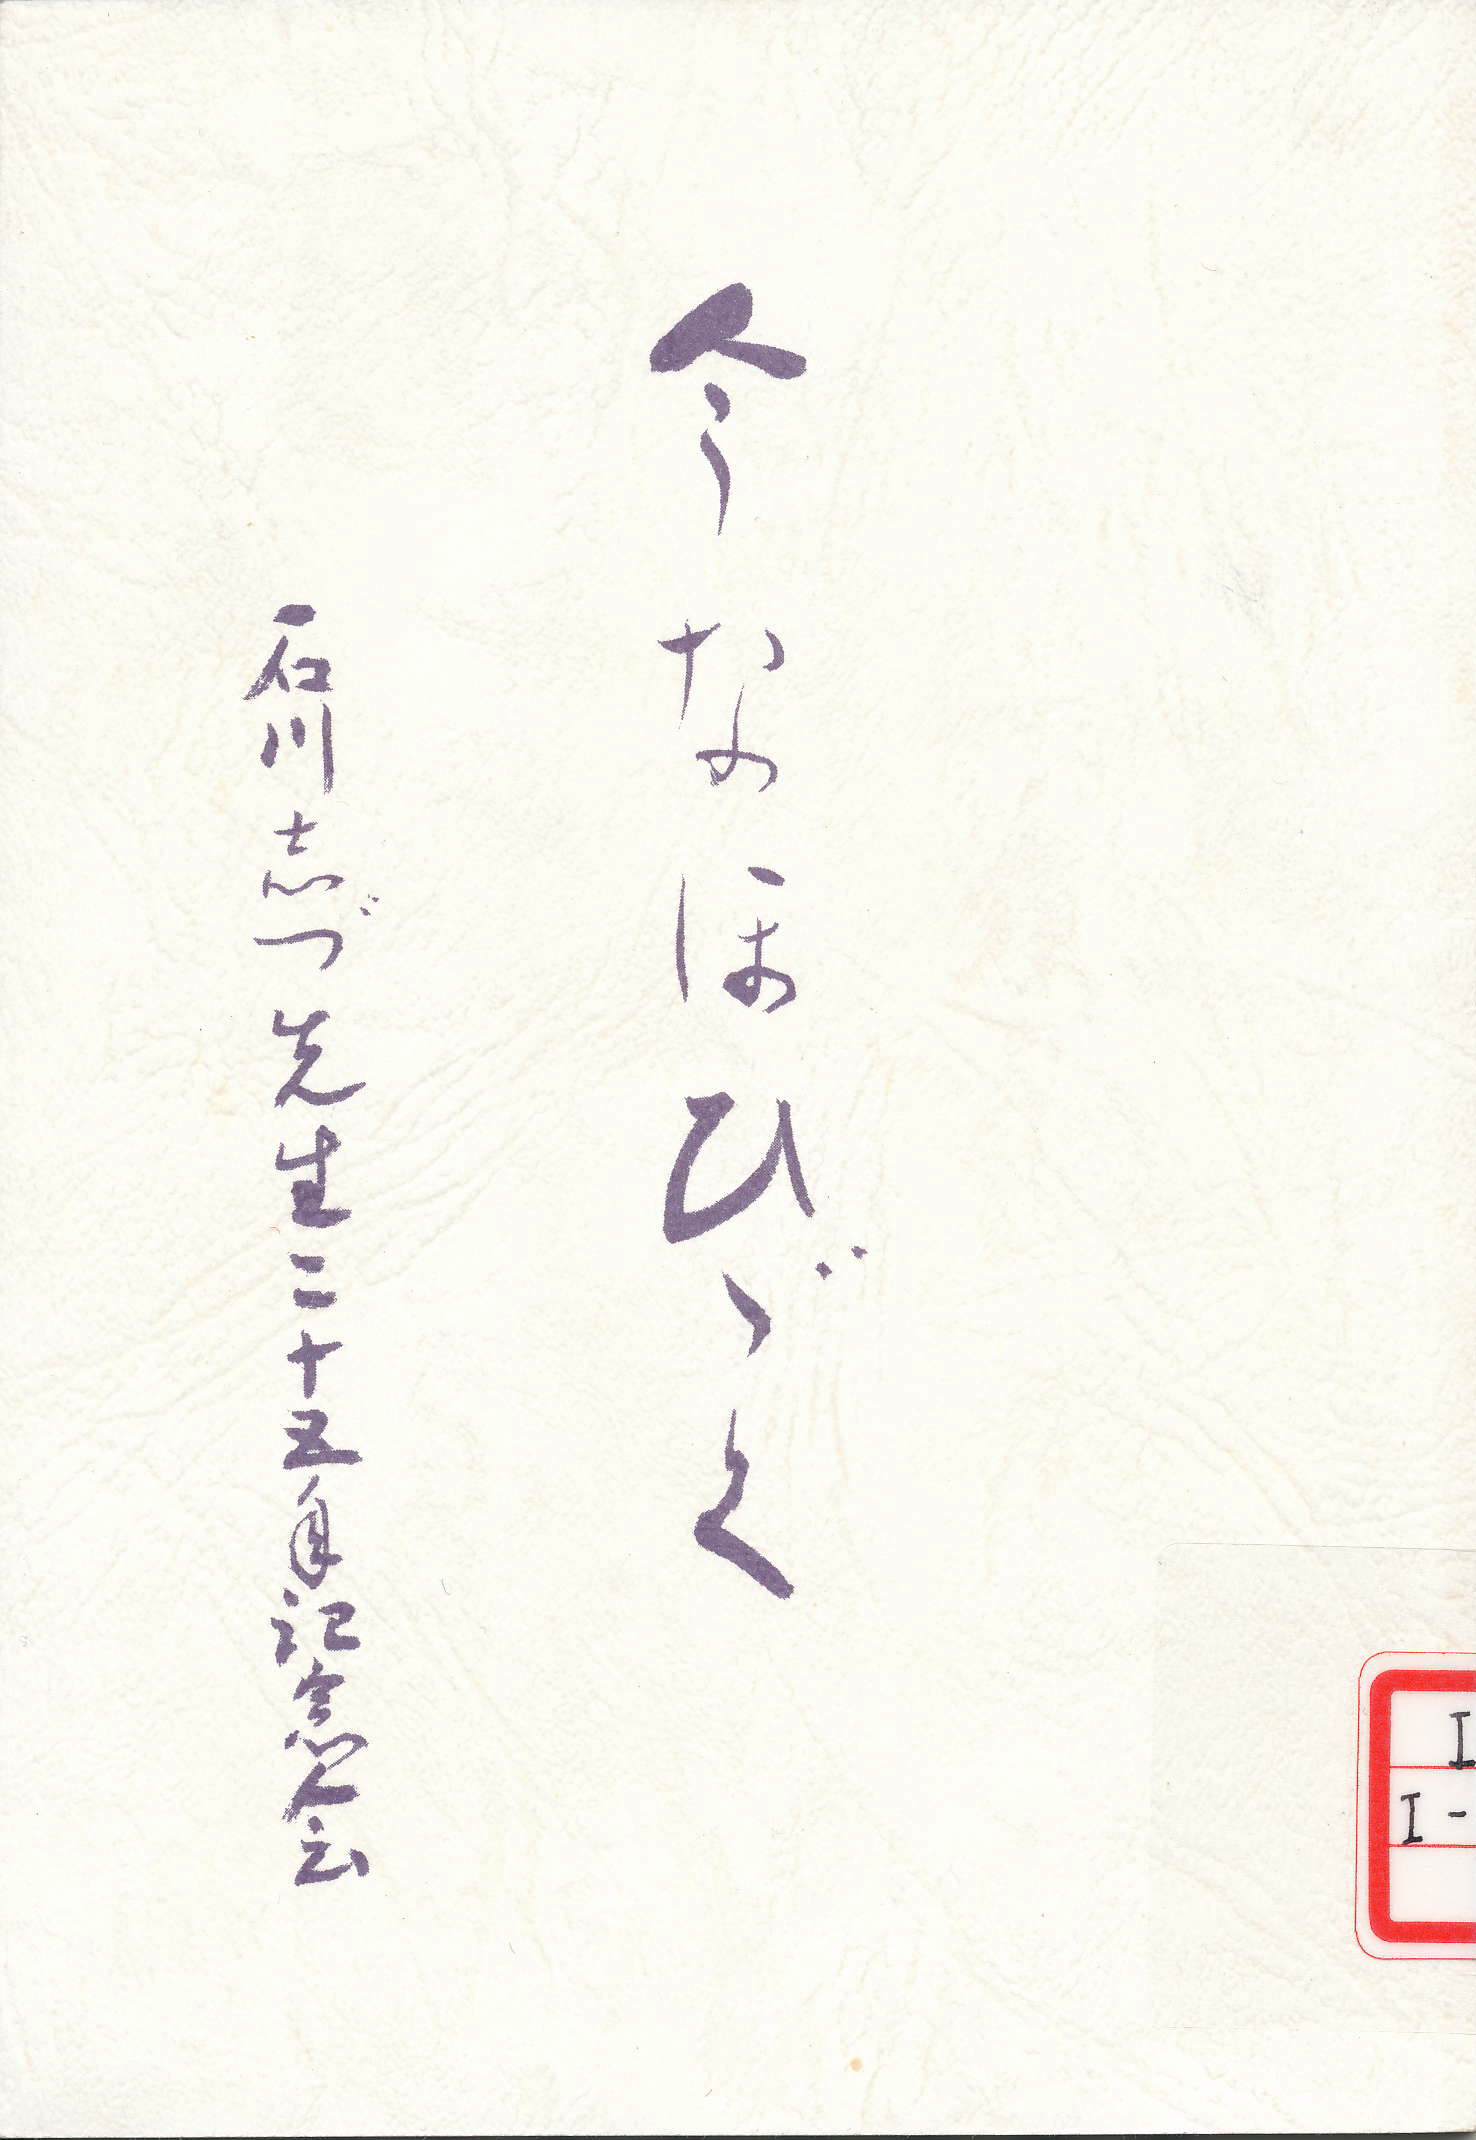 今なほひゞく
石川志づ先生二十五年記念会
I
I-